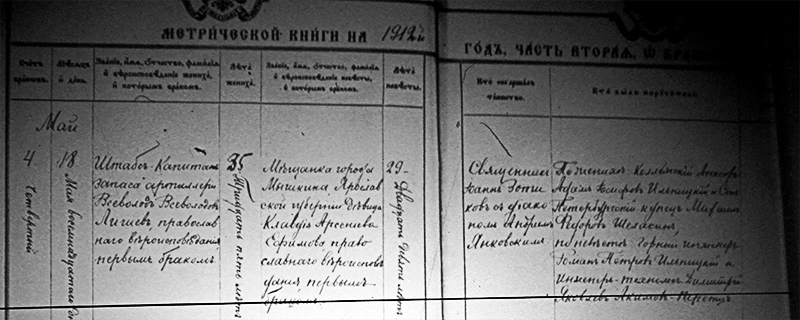 МЕТРИЧЕСКОЙ КНИГИ НА 1912й
ГОДЪ, ЧАСТЬ ВТОРАЯ, Ѡ
Счетъ браковъ.
Мѣсяцъ и день.
Званіе, имя, отчество, фамилія и вѣроисповѣданіе жениха, и которымъ бракомъ.
Лѣта жениха.
Званіе, имя, отчество, фамилія и вѣроисповѣданіе невѣсты, и которымъ бракомъ.
Лѣта невѣсты.
Кто совершалъ таинство.
Кто были поручители
Май
4
Четвертый
18
Мая восемнадцатаго
Штабсъ-Капитанъ
запаса артиллеріи
Всеволодъ Всеволодо
православ
наго вѣроисповѣданія
первымъ бракомъ
35
Тридцать пять лѣтъ
Мѣщанка города
Мышкина, Ярослав
ской губерніи дѣвица
Клавдія Арсеніева
Ефимова право
славнаго вѣроиспов
данія первымъ
бракомъ.
29
Двадцать девять лѣтъ
Священникъ
Іоаннъ
ковъ съ діако
номъ Андреемъ
Янковскимъ
По женихѣ: Коллежскій
Адамъ
Петербургскій купецъ Михаилъ
Ѳедоровъ
по невѣстѣ: горный инженеръ
Романъ Петровъ и
Инженеръ-технологъ Димитрій
Яковлевъ Акимовъ-Перетцъ